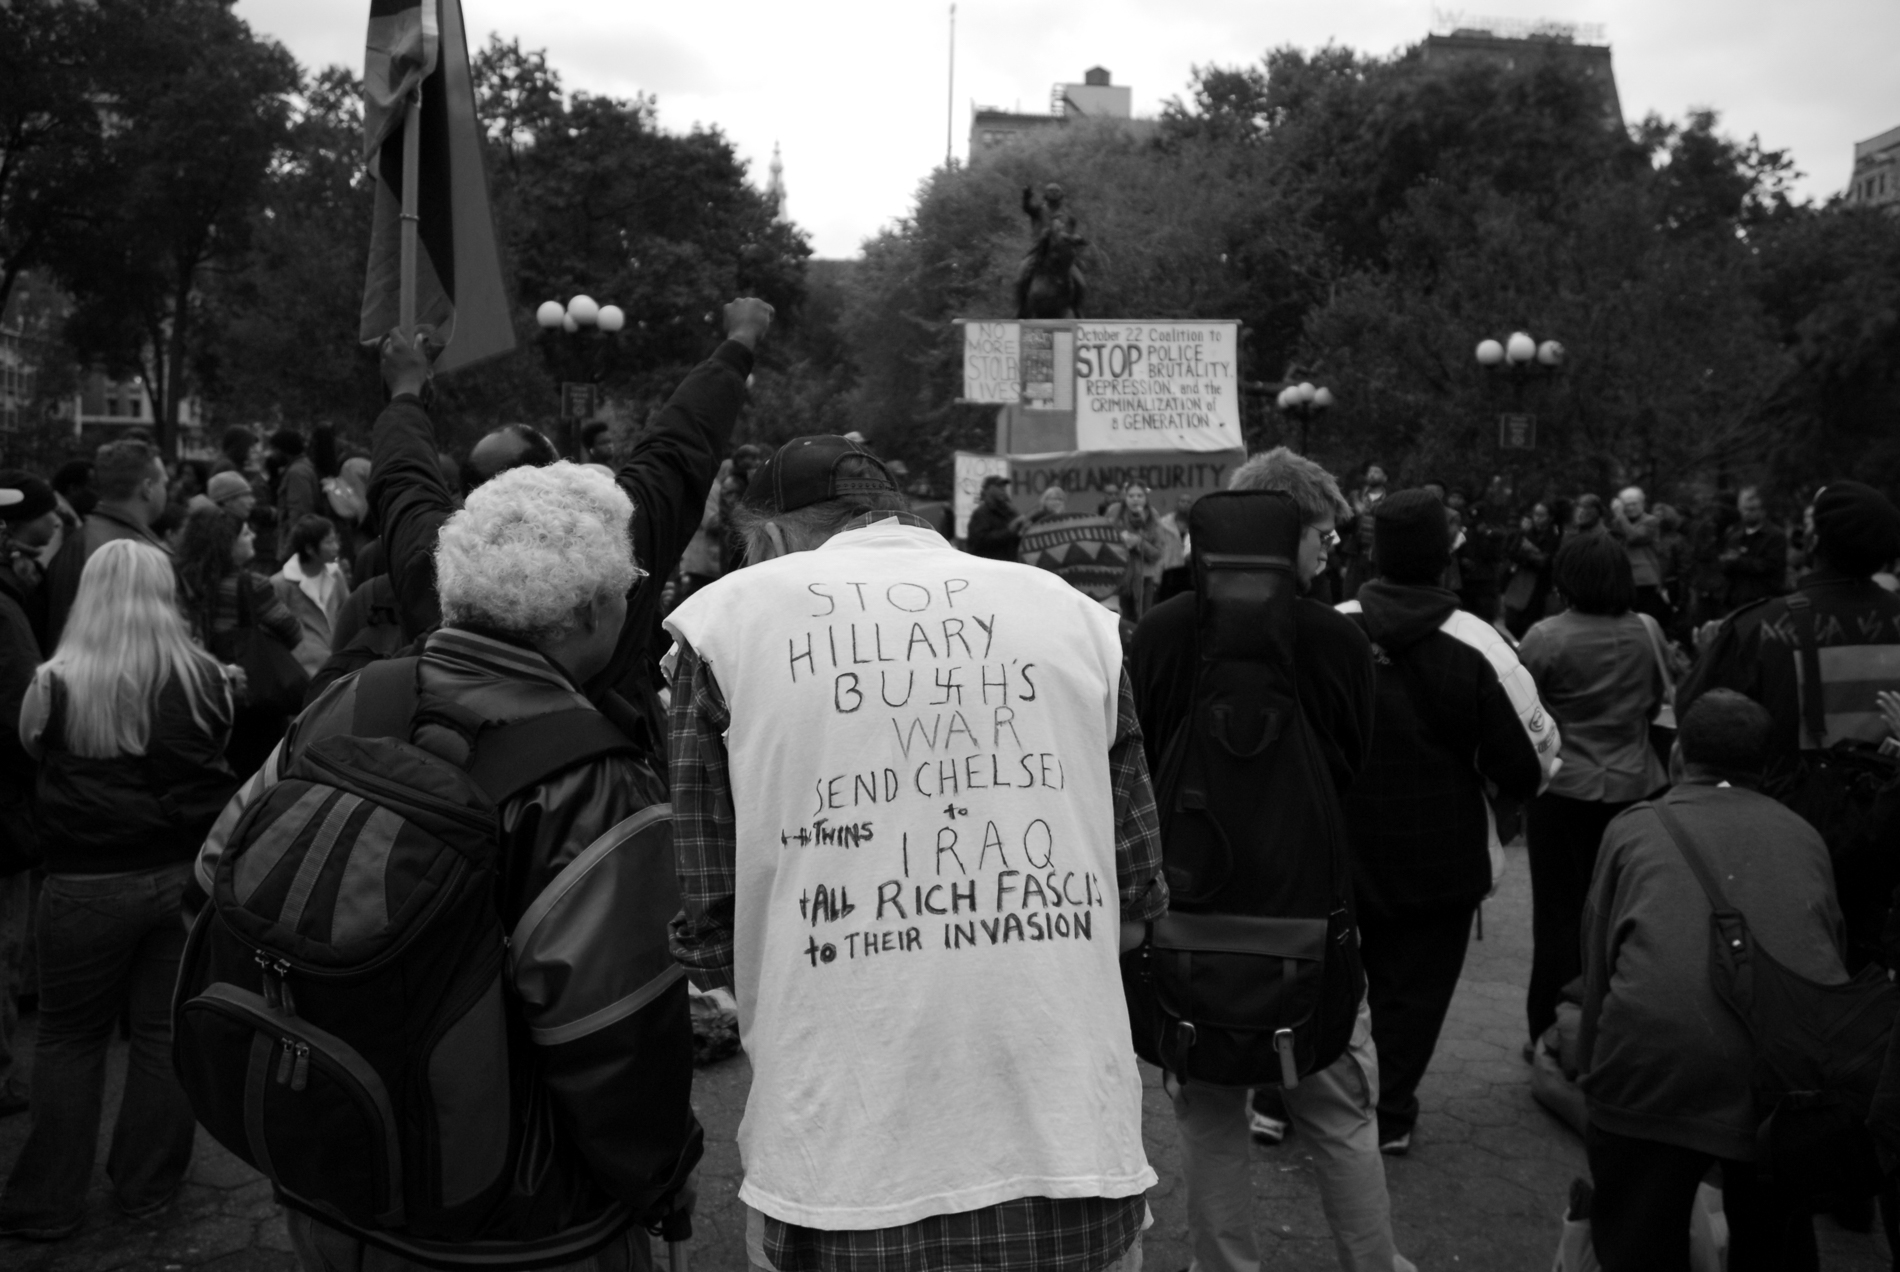 NO
MORE
STOLEN
LIVES
October 22 Coalition to
STOP POLICE
BRUTALITY,
REPRESSION, and the
CRIMINALIZATION of
a GENERATION
HOMELAND SECURITY
STOP
HILLARY
BU卐H'S
WAR
SEND CHELSEA
to
++TWINS IRAQ
+ALL RICH FASCIS
to THEIR INVASION